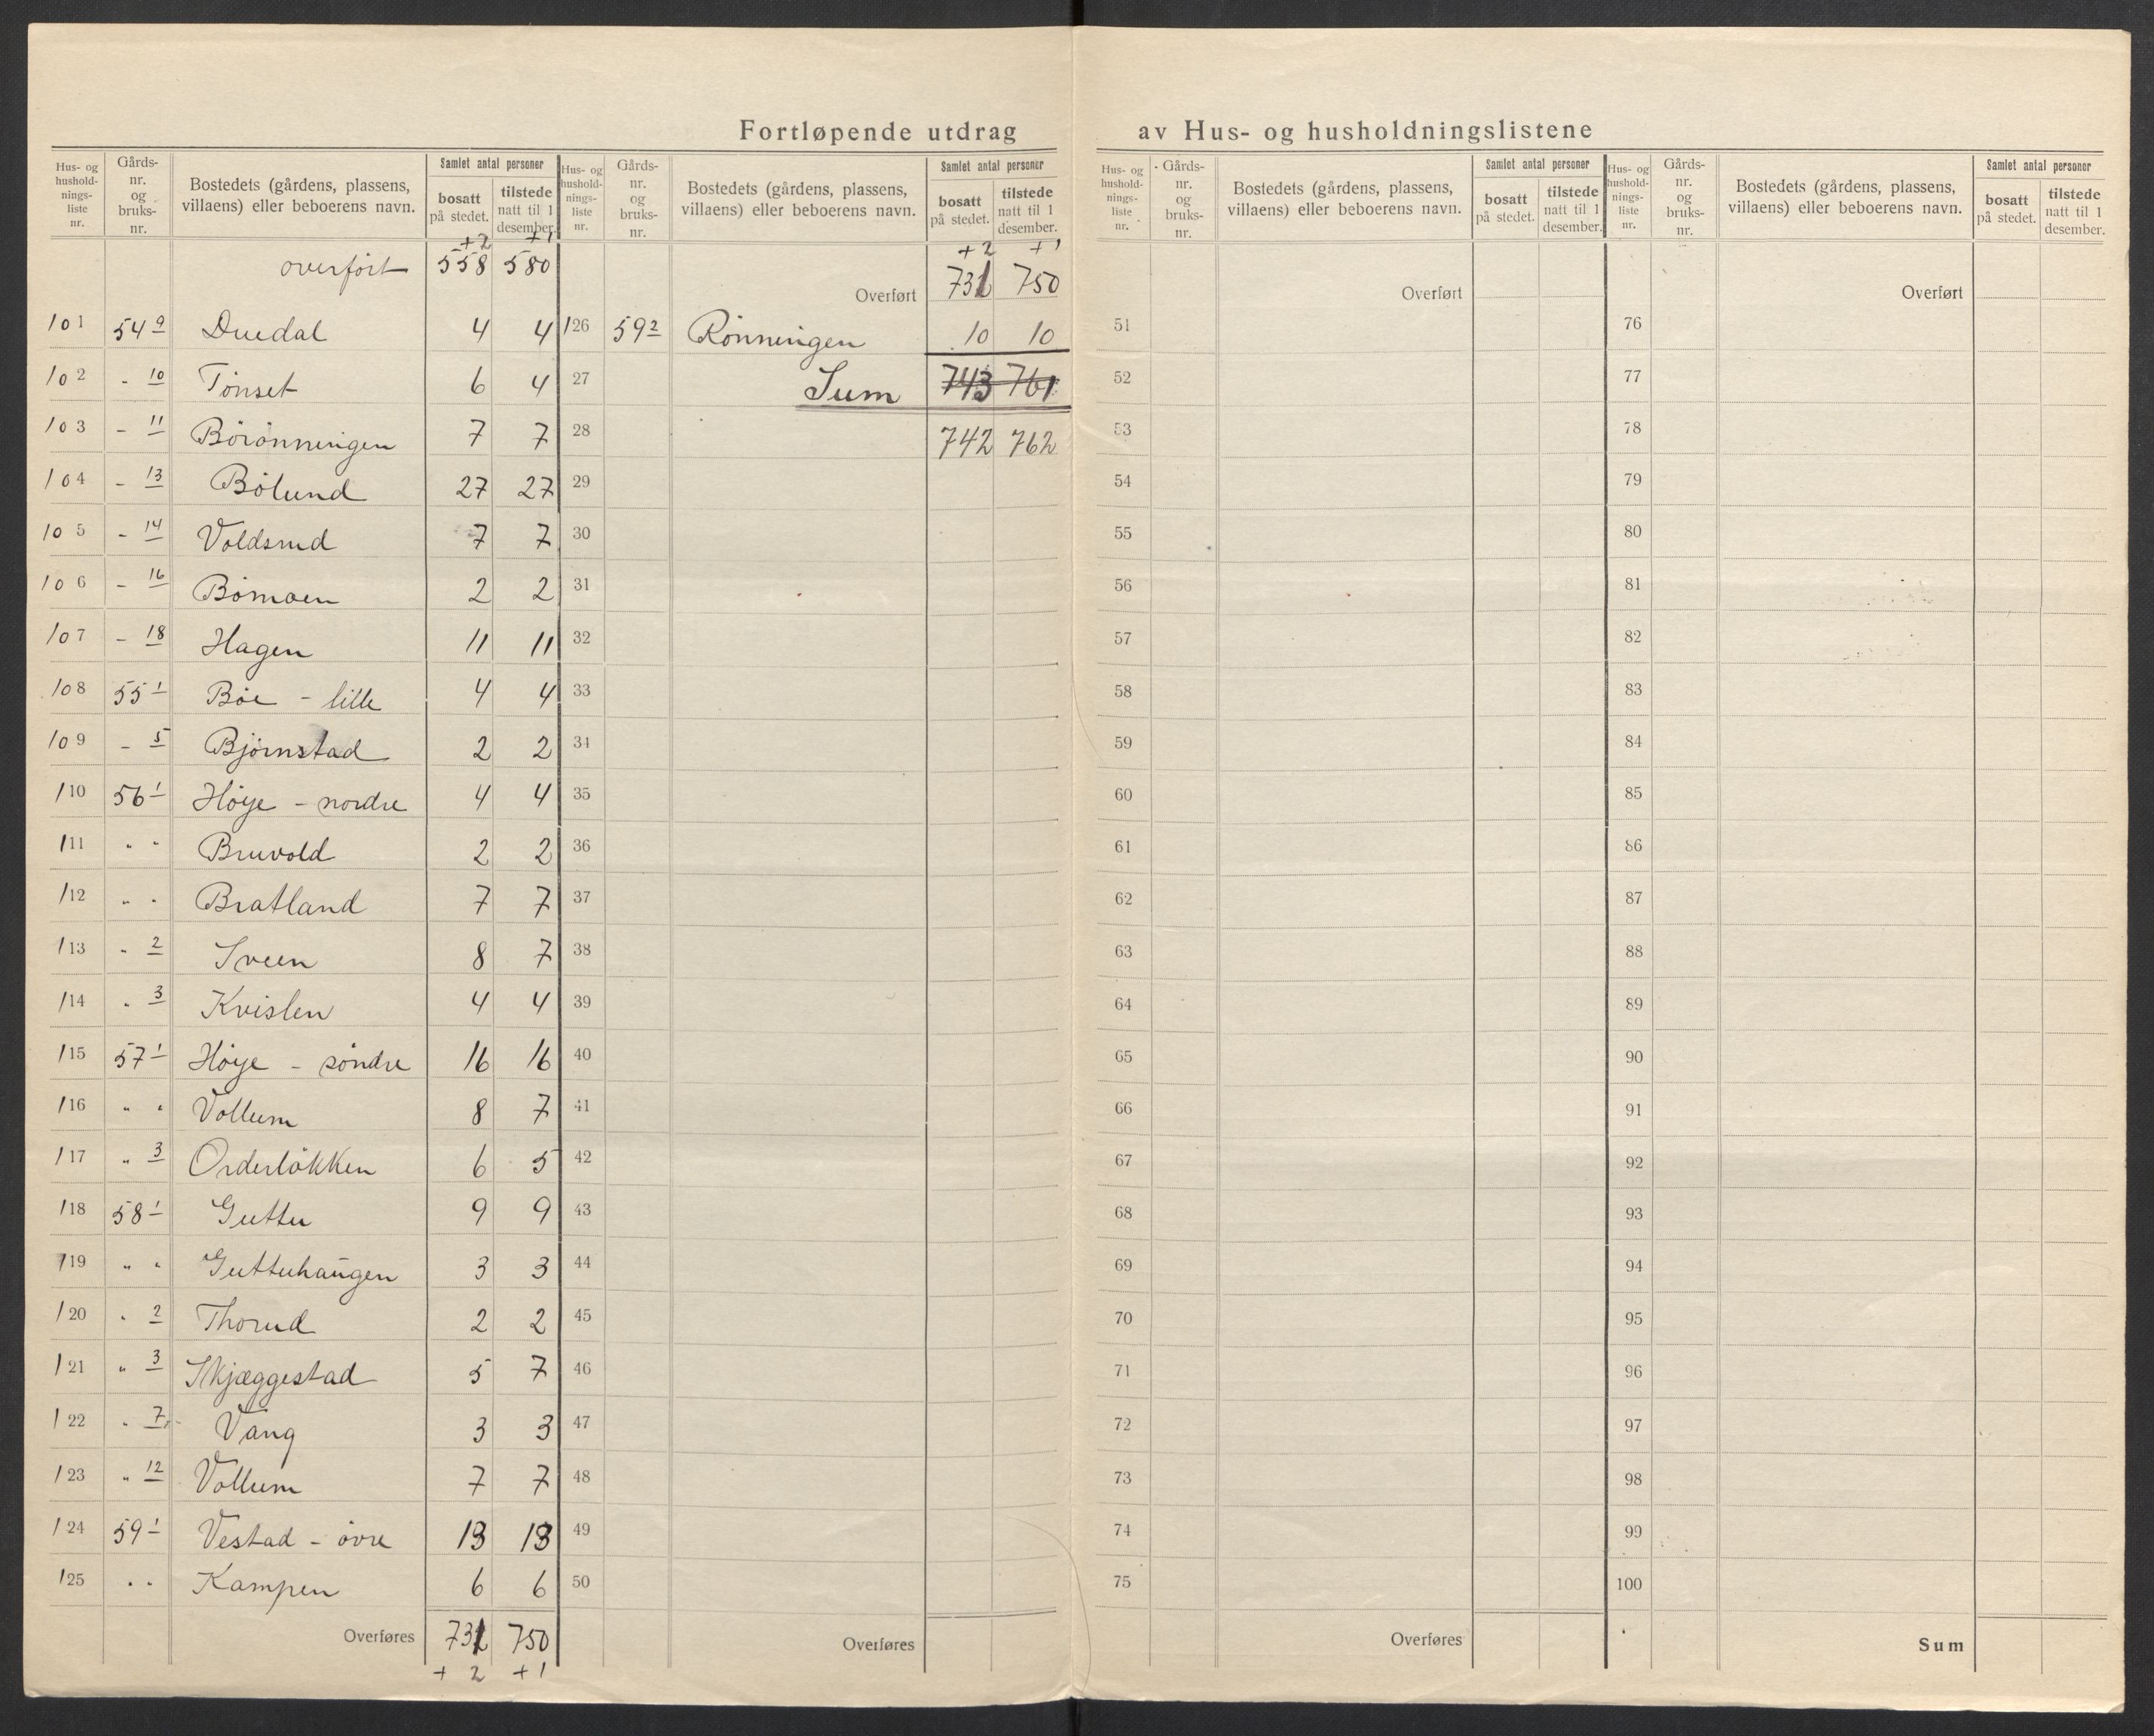 Fortløpende utdrag av Hus- og husholdningslistene
Hus- og hushold- nings- liste nr. Gårds- nr. og bruks- nr. Bostedets (gårdens, plassens, villaens) eller beboerens navn. Samlet antal personer bosatt på stedet. tilstede natt til 1 desember.
+2 +1
overført 558 580
101 54 9 Duedal 4 4
102 - 10 Tønset 6 4
103 - 11 Börönningen 7 7
104 - 13 Bölund 27 27
105 - 14 Voldsrud 7 7
106 - 16 Bömoen 2 2
107 - 18 Hagen 11 11
108 55 1 Böe - lille 4 4
109 - 5 Bjørnstad 2 2
110 56 1 Höye - nordre 4 4
111 " " Bruvold 2 2
112 " " Bratland 7 7
113 " 2 Sveen 8 7
114 " 3 Kvislen 4 4
115 57 1 Höye - söndre 16 16
116 " " Vollum 8 7
117 " 3 Orderlökken 6 5
118 58 1 Guttu 9 9
119 " " Guttuhaugen 3 3
120 " 2 Thorud 2 2
121 " 3 Skjæggestad 5 7
122 " 7 Vang 3 3
123 " 12 Vollum 7 7
124 59 1 Vestad - övre 13 13
125 " " Kampen 6 6
Overføres 731 750
+ 2 +1
Hus- og hushold- nings- liste nr. Gårds- nr. og bruks- nr. Bostedets (gårdens, plassens, villaens) eller beboerens navn. Samlet antal personer bosatt på stedet. tilstede natt til 1 desember.
+2 +1
Overført 731 750
126 59 2 Rönningen 10 10
27 Sum 743 761
28 742 762
29
30
31
32
33
34
35
36
37
38
39
40
41
42
43
44
45
46
47
48
49
50
Overføres
Hus- og hushold- nings- liste nr. Gårds- nr. og bruks- nr. Bostedets (gårdens, plassens, villaens) eller beboerens navn. Samlet antal personer bosatt på stedet. tilstede natt til 1 desember.
Overført
51
52
53
54
55
56
57
58
59
60
61
62
63
64
65
66
67
68
69
70
71
72
73
74
75
Overføres
Hus- og hushold- nings- liste nr. Gårds- nr. og bruks- nr. Bostedets (gårdens, plassens, villaens) eller beboerens navn. Samlet antal personer bosatt på stedet. tilstede natt til 1 desember.
Overført
76
77
78
79
80
81
82
83
84
85
86
87
88
89
90
91
92
93
94
95
96
97
98
99
100
Sum